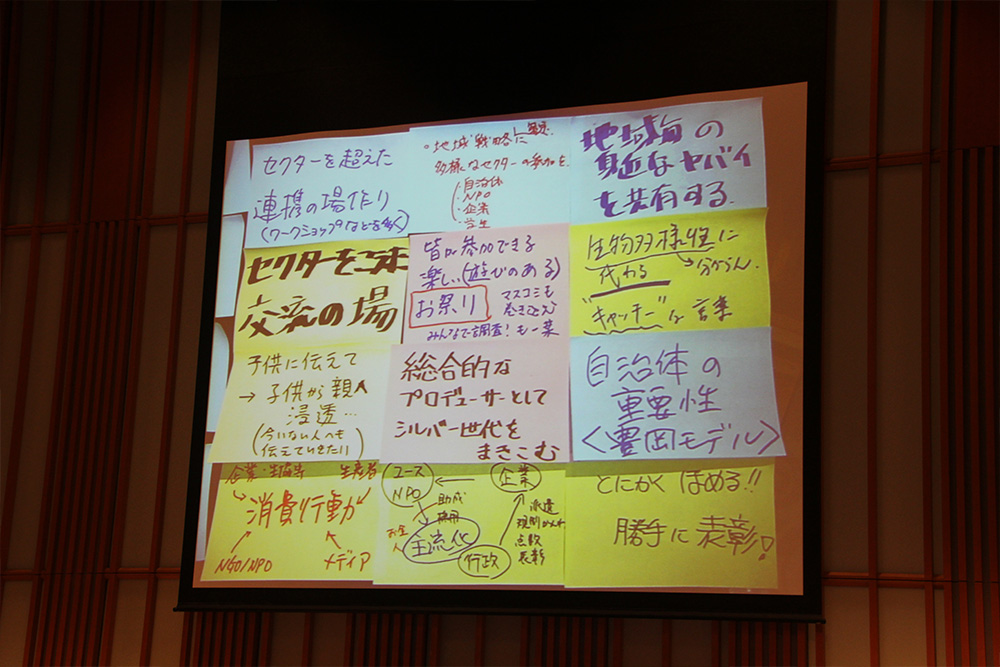 セクターを超えた
連携の場作り
(ワークショップなどを多く)
○地域戦略に
多様なセクターの参加を
自治体
NPO
企業
学生
地域毎の
身近なヤバイ
を共有する
セクターをこえた
交流の場
皆が参加できる
楽しい(遊びのある)
お祭り
マスコミも
巻きこむ
みんなで調査!も一案
生物多様性に
代わる
→分からん.
"キャッチー"な言葉
子供に伝えて
→子供から親へ
浸透…
(今いない人へも
伝えていきたり)
総合的な
プロデューサーとして
シルバー世代を
まきこむ
自治体の
重要性
<豊岡モデル>
企業・生協等
生産者
消費行動
NGO/NPO
メディア
ユース
NPO
企業
助成
雇用
お金
人
主流化
行政
派遣
規制かんわ
点数
表彰
とにかくほめる!!
勝手に表彰!